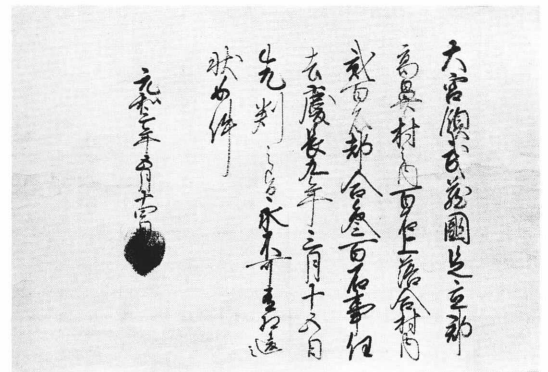 大宮領武蔵国足立郡
高鼻村之内百石上落合村内
弐百石都合参百石事任
去慶長九年三月十五日
先判之旨永不可有相違之
状如件
元和二年五月十四日